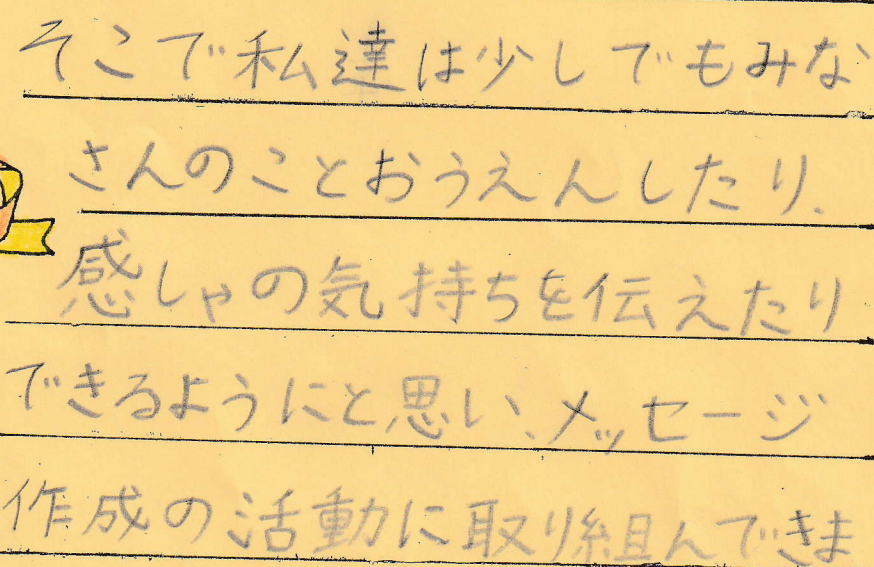 そこで私達は少しでもみな
さんのことおうえんしたり、
感しゃの気持ちを伝えたり
できるようにと思い、メッセージ
作成の活動に取り組んできま